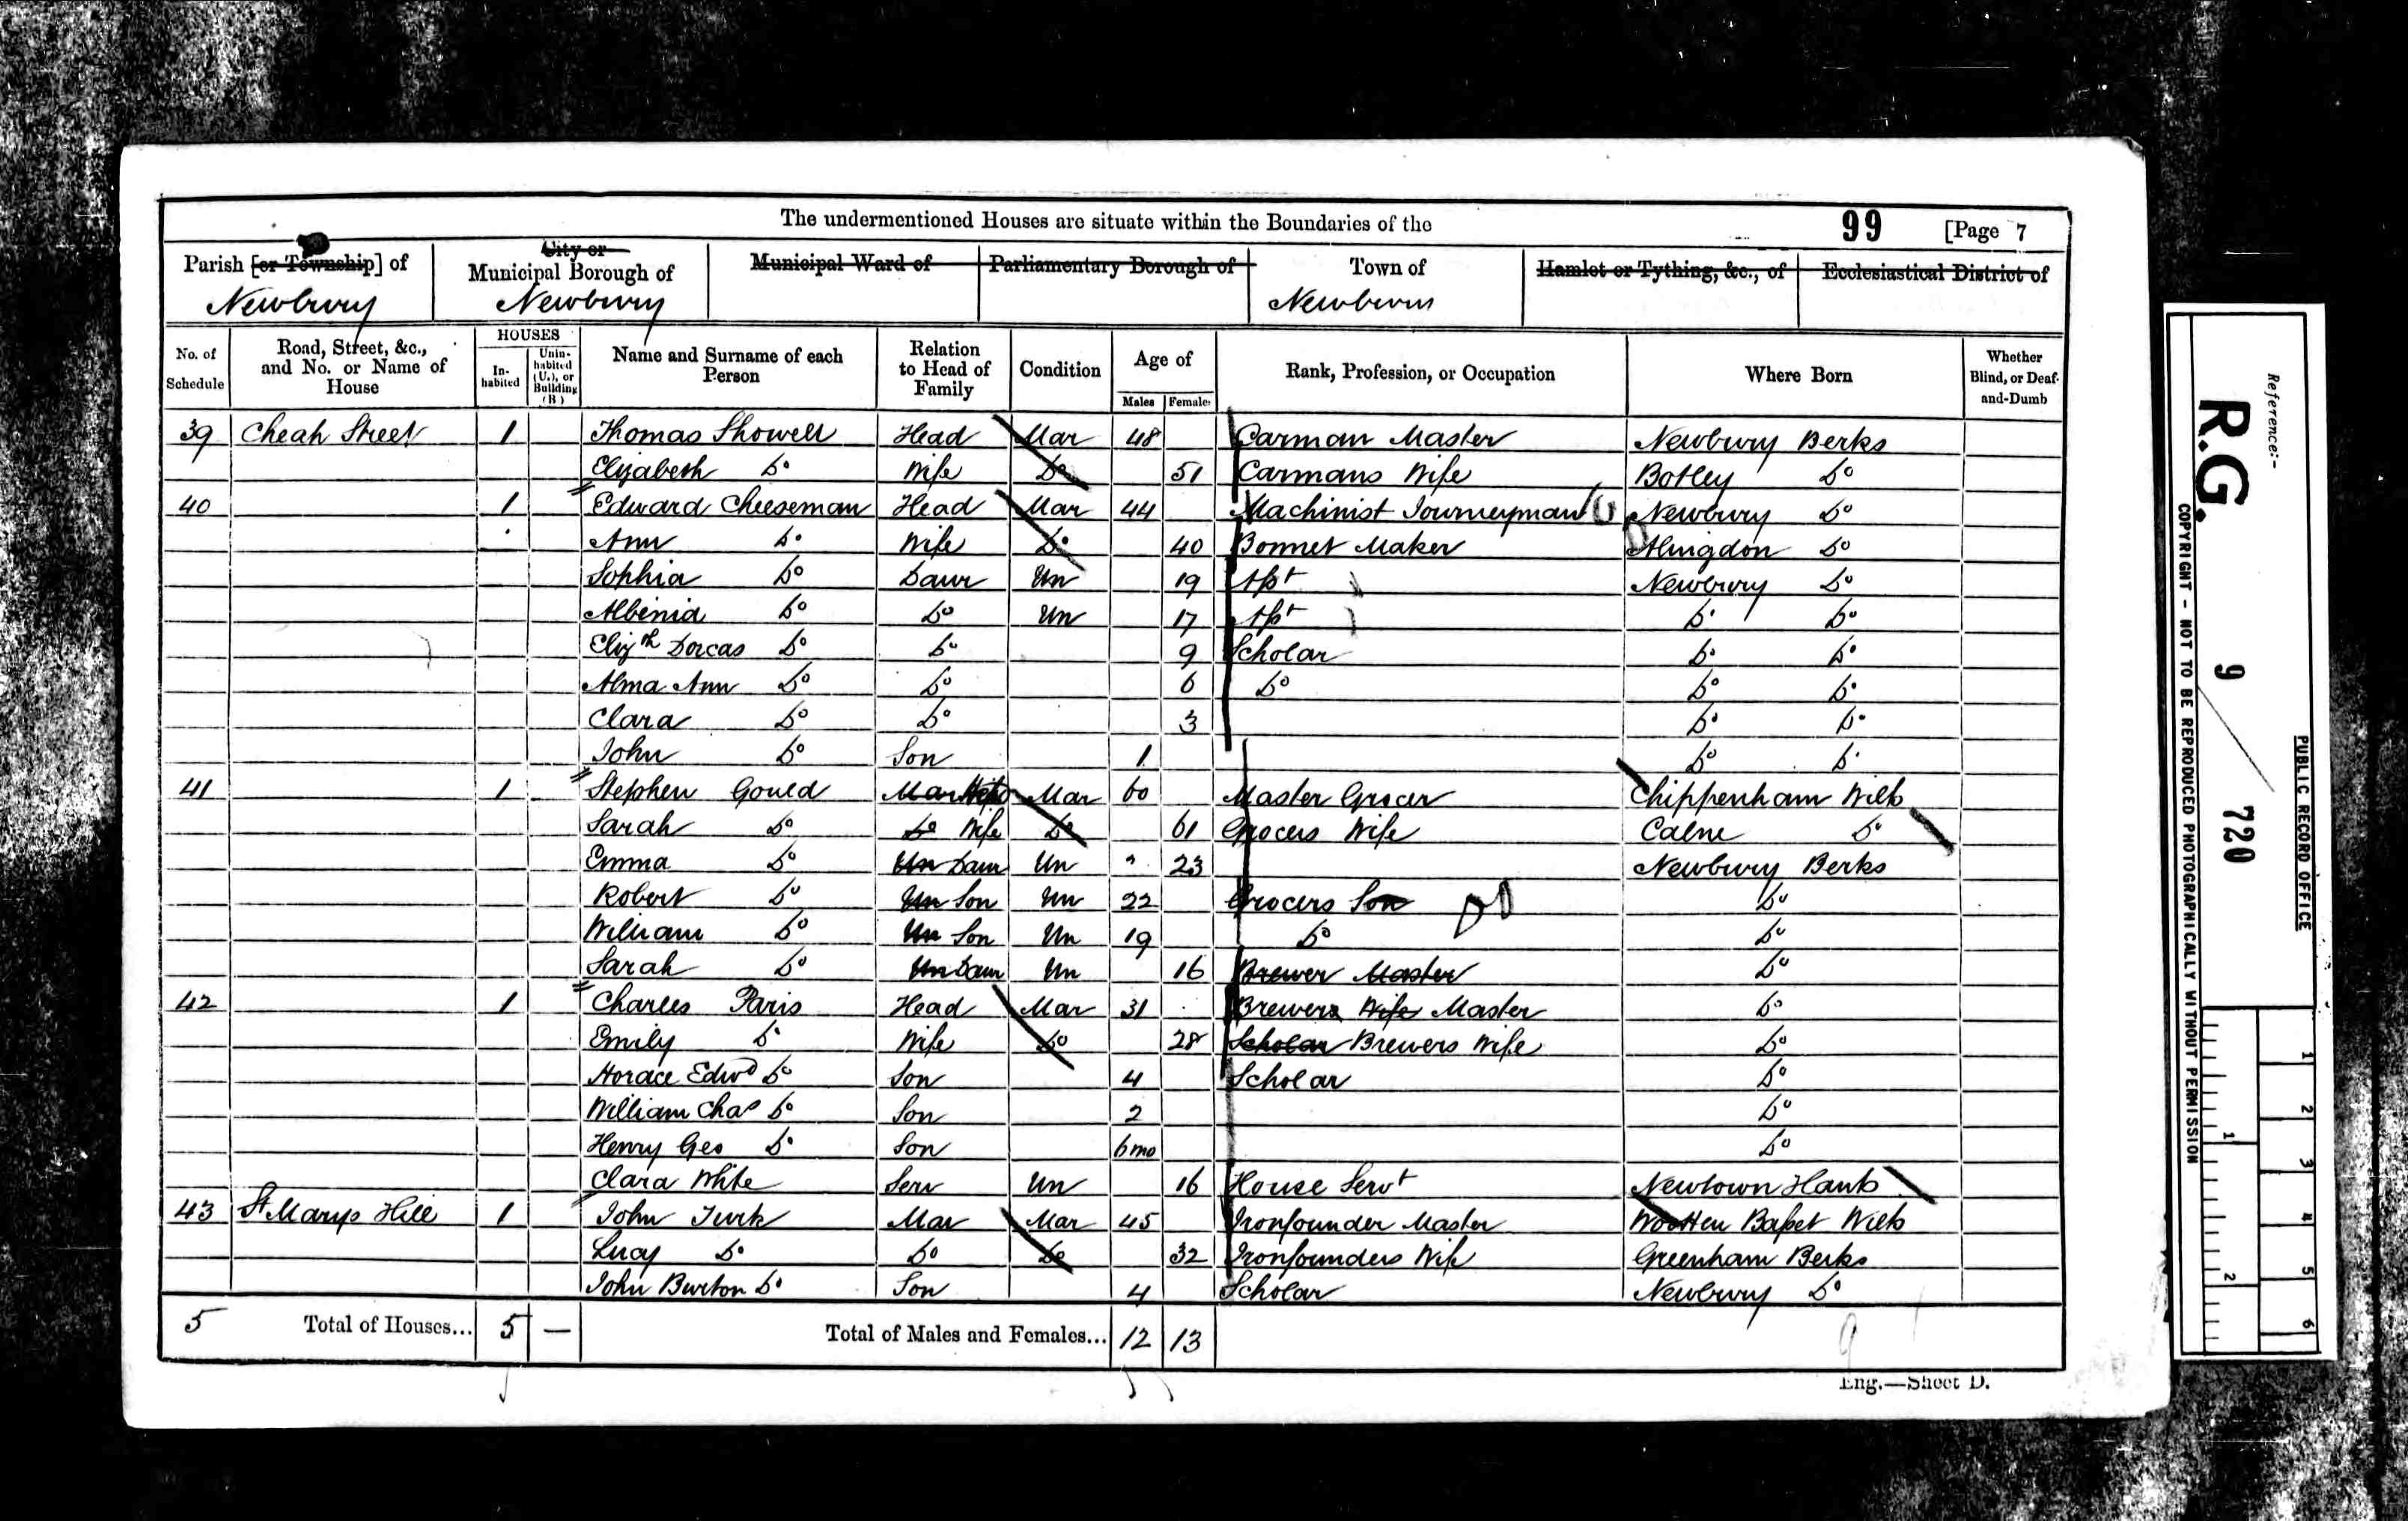 The undermentioned Houses are situate within the Boundaries of the 99 [Page 7
Parish [or Township] of City or Municipal Borough of Municipal Ward of Parliamentary Borough of Town of Hamlet or Tything, &c., of Ecclesiastical District of
Newbury Newbury Newbury
No. of Schedule Road, Street, &c., and No. or Name of House HOUSES In-habited Unin-habited (U.), or Building (B) Name and Surname of each Person Relation to Head of Family Condition Age of Males Females Rank, Profession, or Occupation Where Born Whether Blind, or Deaf-and-Dumb
39 Cheap Street 1 Thomas Showell Head Mar 48 Carman Master Newbury Berks
Elizabeth Do Wife Do 51 Carmans Wife Botley Do
40 1 Edward Cheeseman Head Mar 44 Machinist Journeyman Newbury Do
Ann Do Wife Do 40 Bonnet Maker Abingdon Do
Sophia Do Daur Un 19 Apt Newbury Do
Albinia Do Do Un 17 Apt Do Do
Elizth Dorcas Do Do 9 Scholar Do Do
Alma Ann Do Do 6 Do Do Do
Clara Do Do 3 Do Do
John Do Son 1 Do Do
41 1 Stephen Gould Mar Head Mar 60 Master Grocer Chippenham Wilts
Sarah Do Do Wife Do 61 Grocers Wife Calne Do
Emma Do Un Daur Un 23 Newbury Berks
Robert Do Un Son Un 22 Grocers Son Do
William Do Un Son Un 19 Do Do
Sarah Do Un Daur Un 16 Brewer Master Do
42 1 Charles Paris Head Mar 31 Brewers Wife Master Do
Emily Do Wife Do 28 Scholar Brewers Wife Do
Horace Edwd Do Son 4 Scholar Do
William Chas Do Son 2 Do
Henry Geo Do Son 6mo Do
Clara White Serv Un 16 House Servt Newtown Hants
43 St Marys Hill 1 John Turk Mar Mar 45 Ironfounder Master Wootten Basset Wilts
Lucy Do Do Do 32 Ironfounders Wife Greenham Berks
John Burton Do Son 4 Scholar Newbury Do
5 Total of Houses... 5 — Total of Males and Females... 12 13
Eng.—Sheet D.
Reference:-
R.G. 9 / 720
PUBLIC RECORD OFFICE
COPYRIGHT - NOT TO BE REPRODUCED PHOTOGRAPHICALLY WITHOUT PERMISSION
1 2 3 4 5 6
1 2